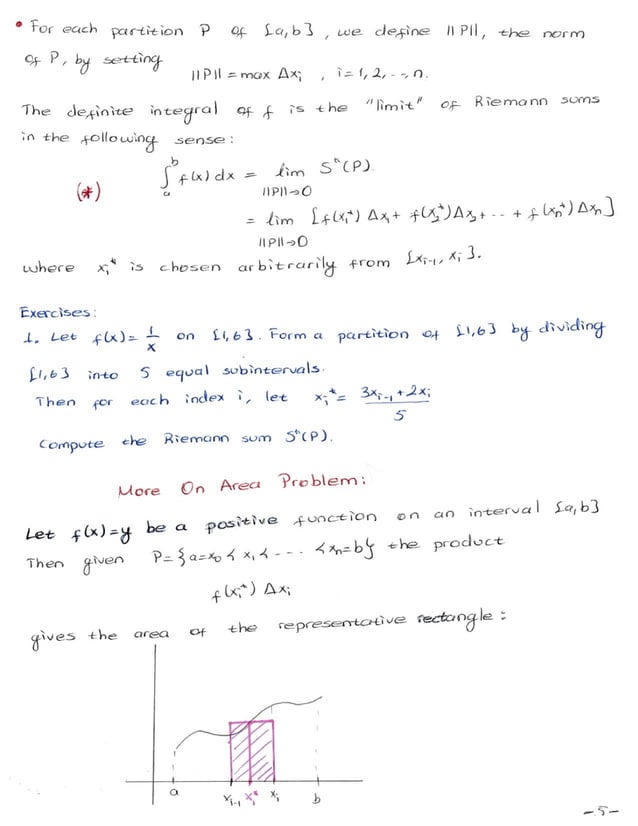 • For each partition P of [a,b], we define ||P||, the norm
of P, by setting
||P|| = max Δxᵢ , i=1,2,...,n.
The definite integral of f is the "limit" of Riemann sums
in the following sense:
(*) ∫ₐᵇ f(x) dx = lim S*(P).
||P||→0
= lim [f(x₁*) Δx₁ + f(x₂*) Δx₂ + ... + f(xₙ*) Δxₙ]
||P||→0
where xᵢ* is chosen arbitrarily from [xᵢ₋₁, xᵢ].
Exercises:
1. Let f(x) = 1/x on [1,6]. Form a partition of [1,6] by dividing
[1,6] into 5 equal subintervals.
Then for each index i, let xᵢ* = (3xᵢ₋₁+2xᵢ)/5
Compute the Riemann sum S*(P).
More On Area Problem:
Let f(x)=y be a positive function on an interval [a,b]
Then given P={a=x₀<x₁<....<xₙ=b} the product
f(xᵢ*) Δxᵢ
gives the area of the representative rectangle:
a xᵢ₋₁ xᵢ* xᵢ b
-5-